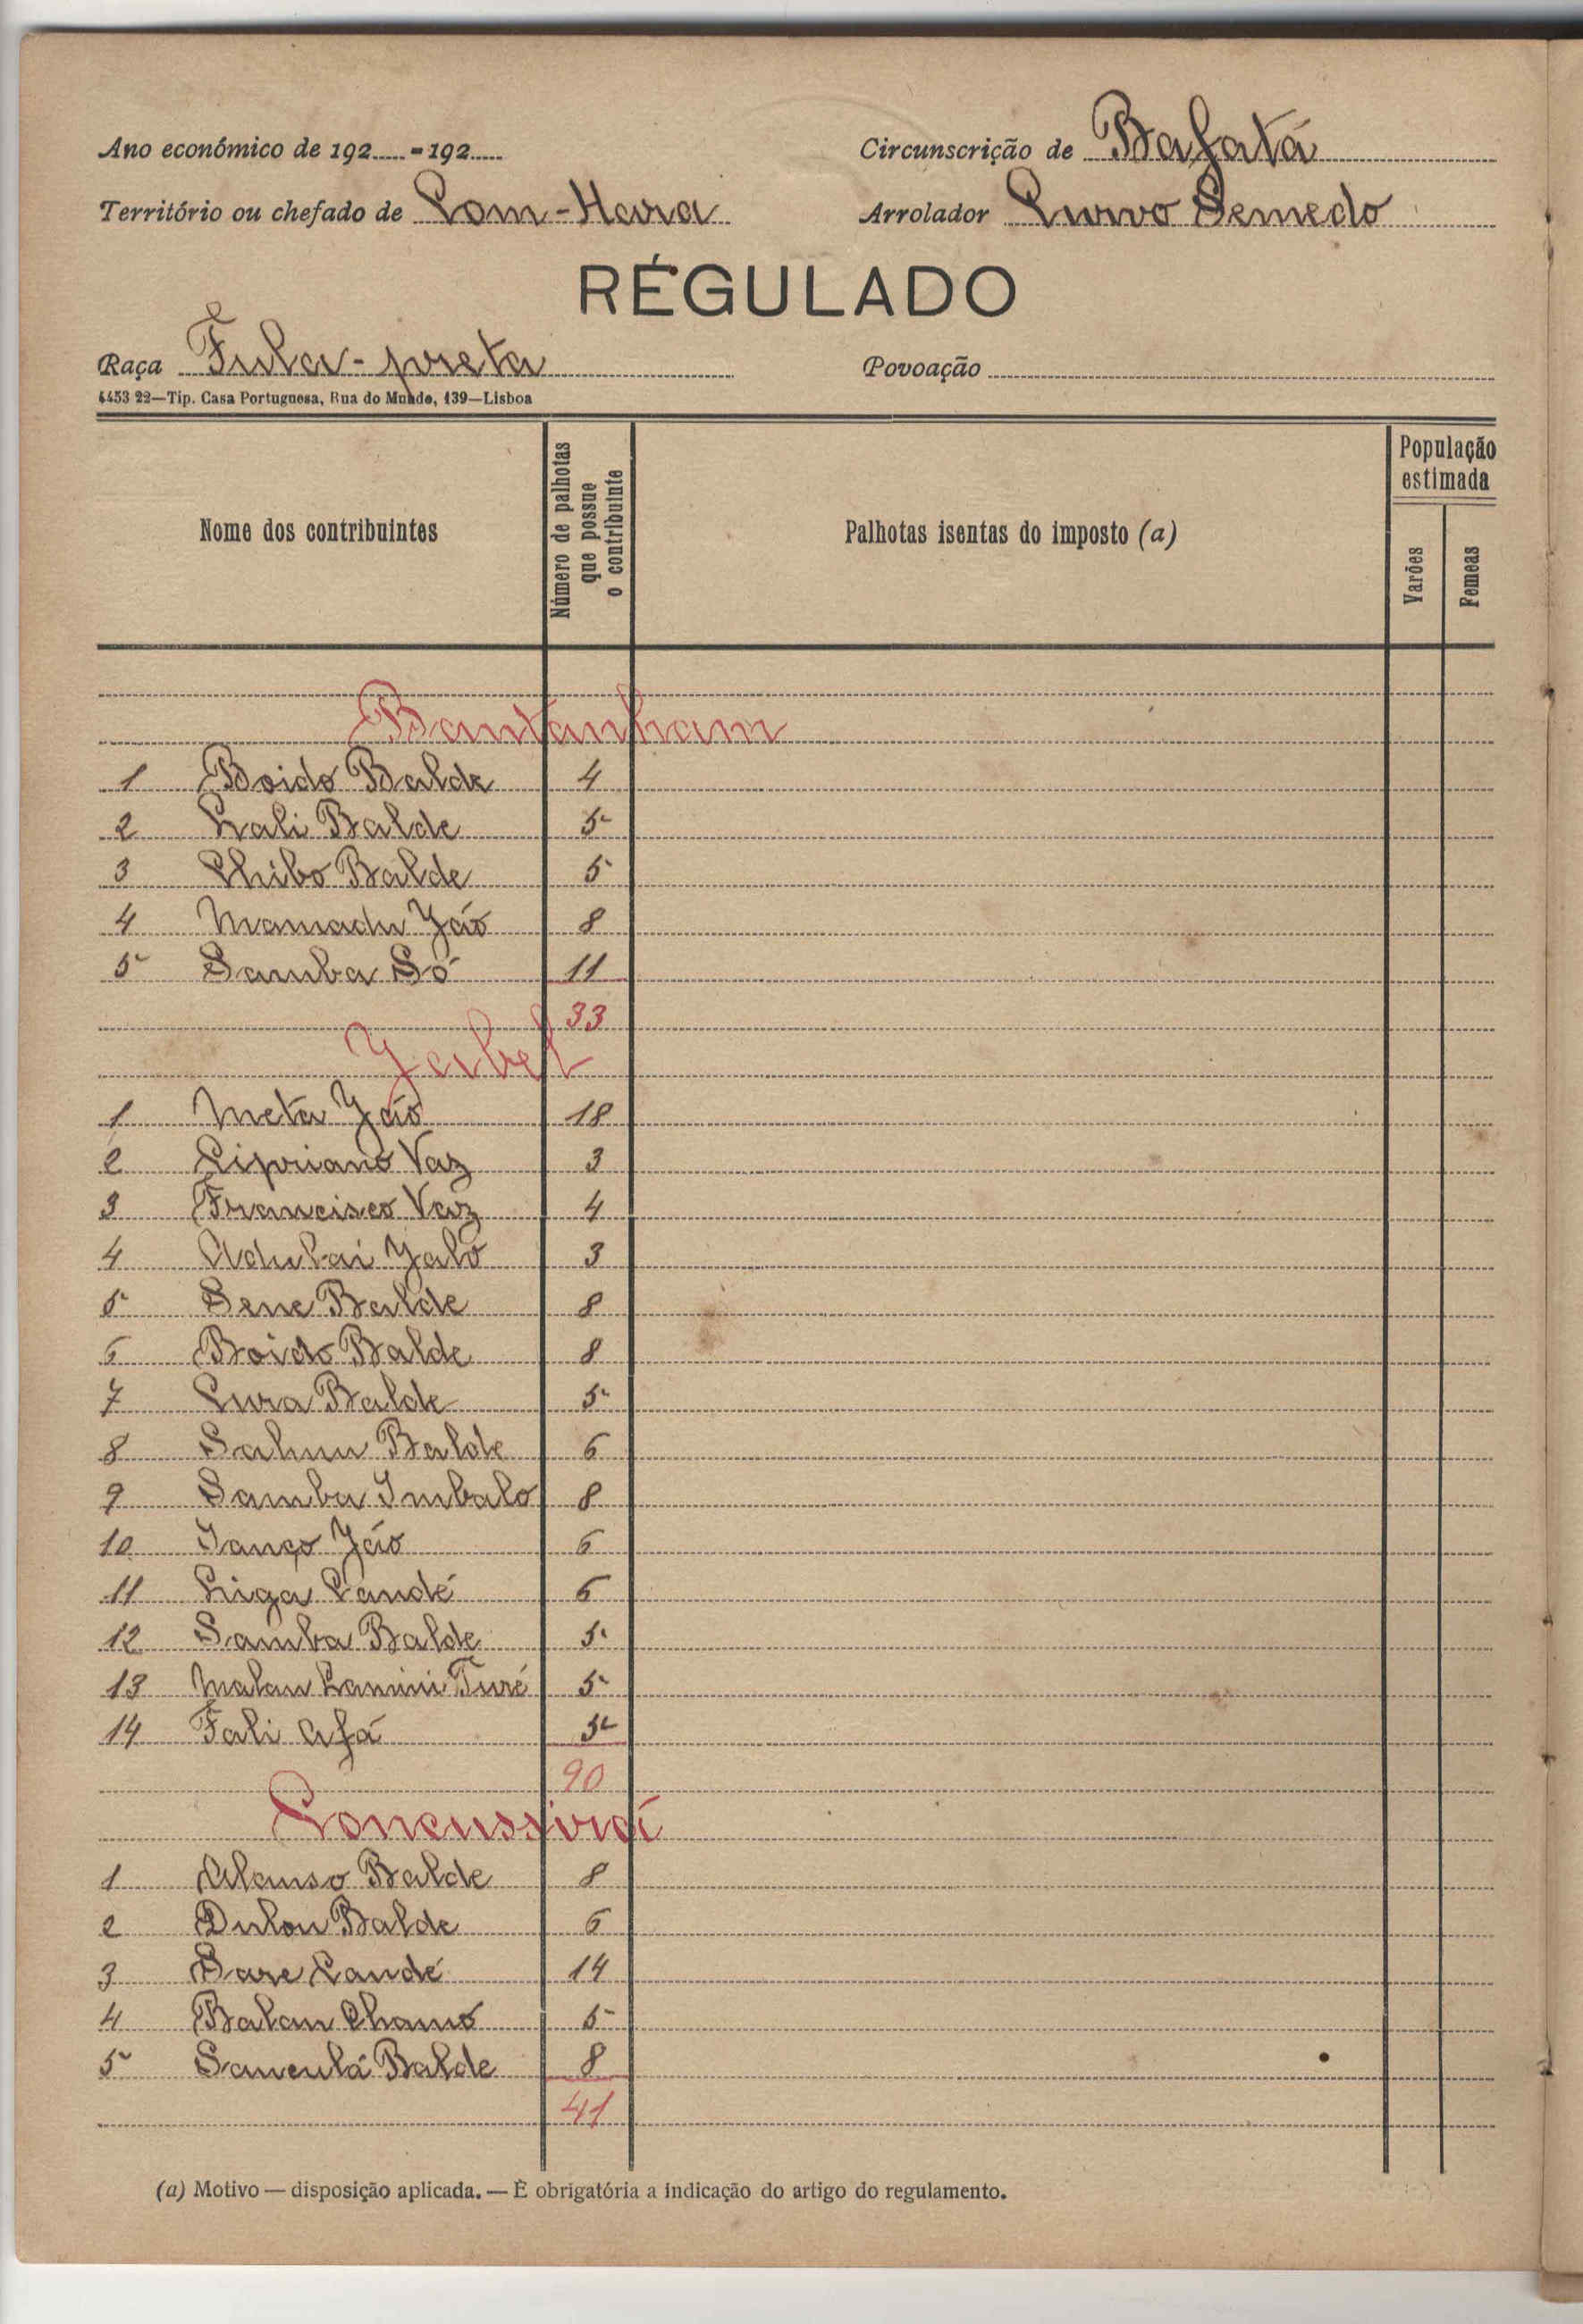 Ano económico de 192..... - 192.....
Circunscrição de Bafatá
Território ou chefado de Com-Hara
Arrolador Curvo Semedo
RÉGULADO
Raça Fula-preta
Povoação
4453 22—Tip. Casa Portuguesa, Rua do Mundo, 139—Lisboa
Nome dos contribuintes
Número de palhotas que possue o contribuinte
Palhotas isentas do imposto (a)
População estimada
Varões
Femeas
Bantanham
1 Boido Balde 4
2 Lali Balde 5
3 Chibo Balde 5
4 Mamadu Jáo 8
5 Samba Só 11
33
Jabel
1 Meta Jáo 18
2 Cipriano Vaz 3
3 Francisco Vaz 4
4 Adulai Jaló 3
5 Sene Balde 8
6 Boido Balde 8
7 Cura Balde 5
8 Balde 6
9 Samba Imbalo 8
10 Jáo 6
11 Liga Candé 6
12 Samba Balde 5
13 Malan Lamini Turé 5
14 Fali Afá 5
90
1 Alanso Balde 8
2 Dulou Balde 6
3 Sare Candé 14
4 Balan Chamó 5
5 Sanculá Balde 8
41
(a) Motivo — disposição aplicada. — É obrigatória a indicação do artigo do regulamento.